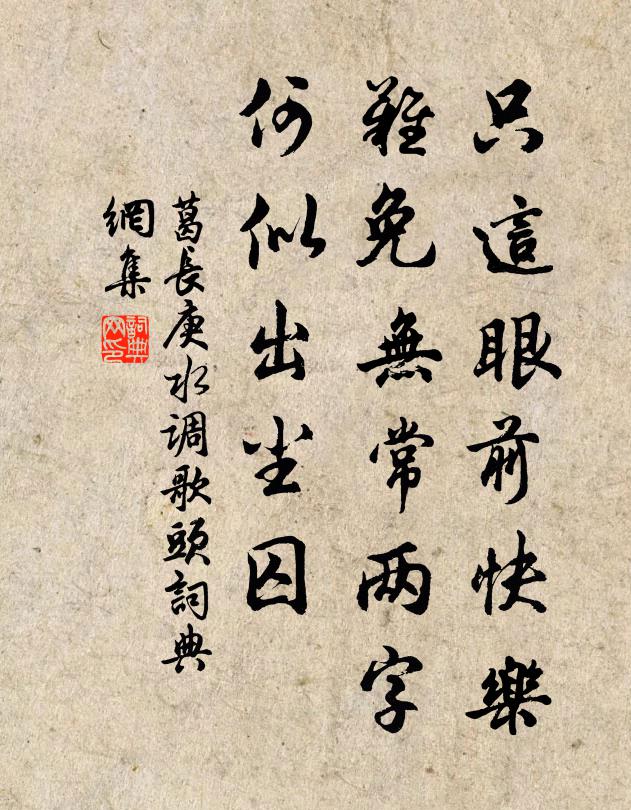 只這眼前快樂
難免無常两字
何似出尘囚
葛長庚水调歌頭詞典
網集
詞典网印